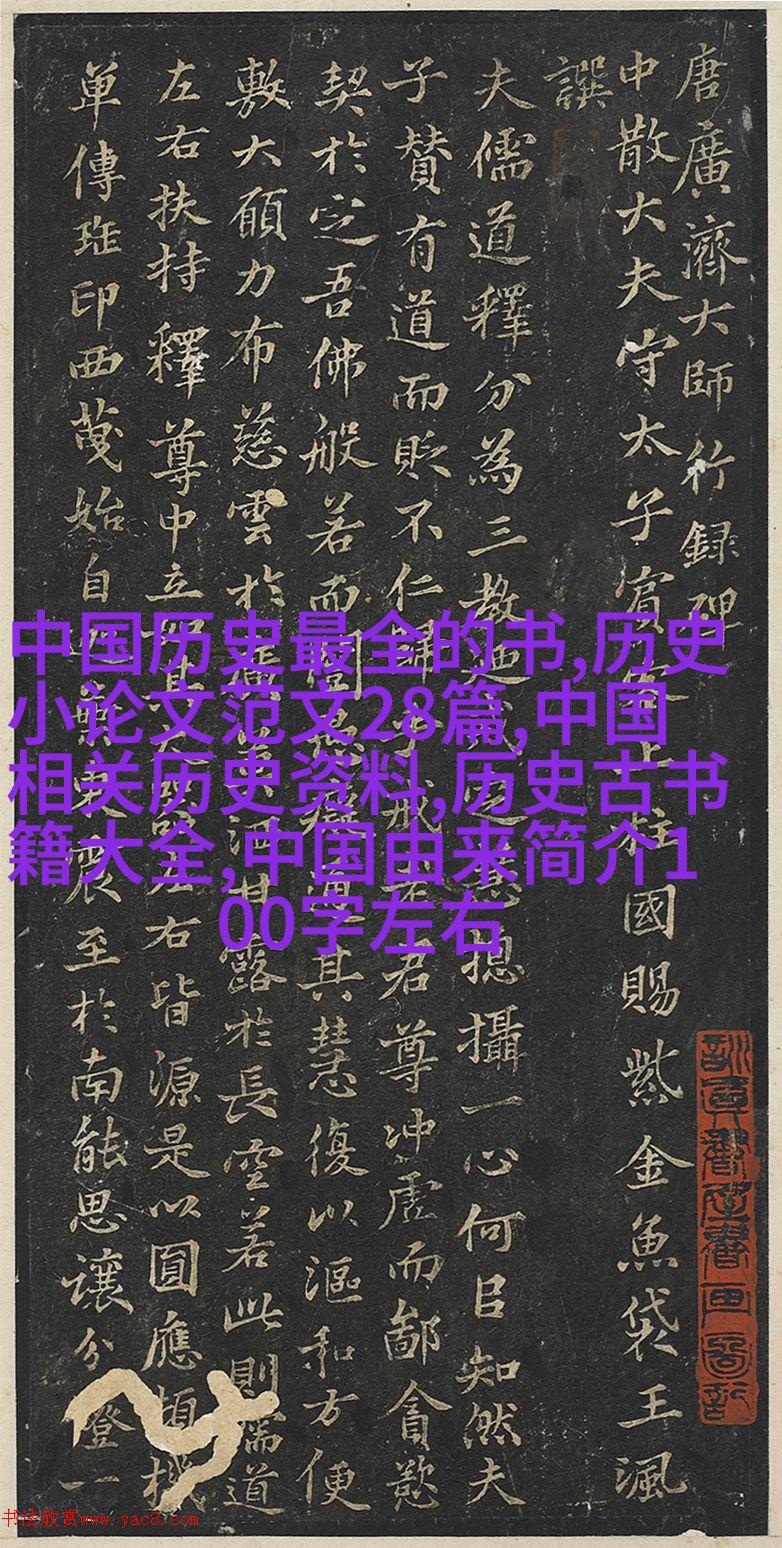 唐廣濟大師行録碑
中散大夫守太子賓上柱國賜紫金魚袋王渢
譔
夫儒道釋分為三教摠攝一心何㠯知然夫
子賛有道而貶不仁戒君尊冲虛而鄙貪慾
契於㝎吾佛般若而其慧復以漚和方便
敷大願力布慈雲於洒甘露於長空若此則儒道
左右扶持釋尊中立左右皆源是以圓應頓機
單傳印西始自東震至於南能思讓分燈一
中国历史最全的书,历史
小论文范文28篇,中国
相关历史资料,历史古书
籍大全,中国由来简介1
00字左右
书法欣赏www.yac8.com